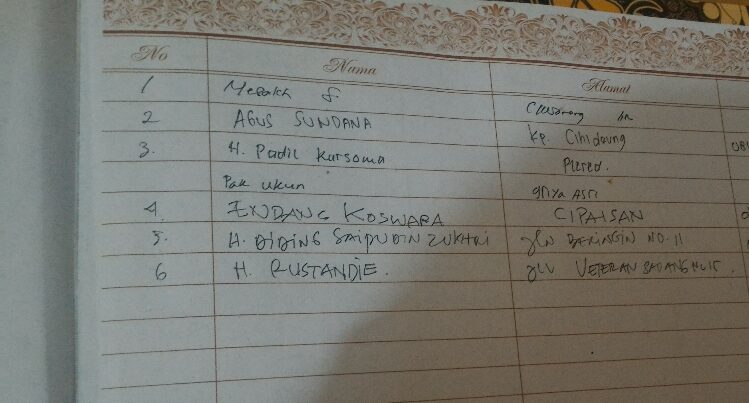 No Nama Alamat
1
2 AGUS SUNDANA Kp. Cihideung
3. H. Padil Kursoma Plered.
Pak Ukun griya Asri
4. ENDANG KOSWARA CIPAISAN
5. H. DIDING SAIPUDIN ZUKHRI JLN BERINGIN NO. 11
6 H. RUSTANDIE. JLN VETERAN SADANG